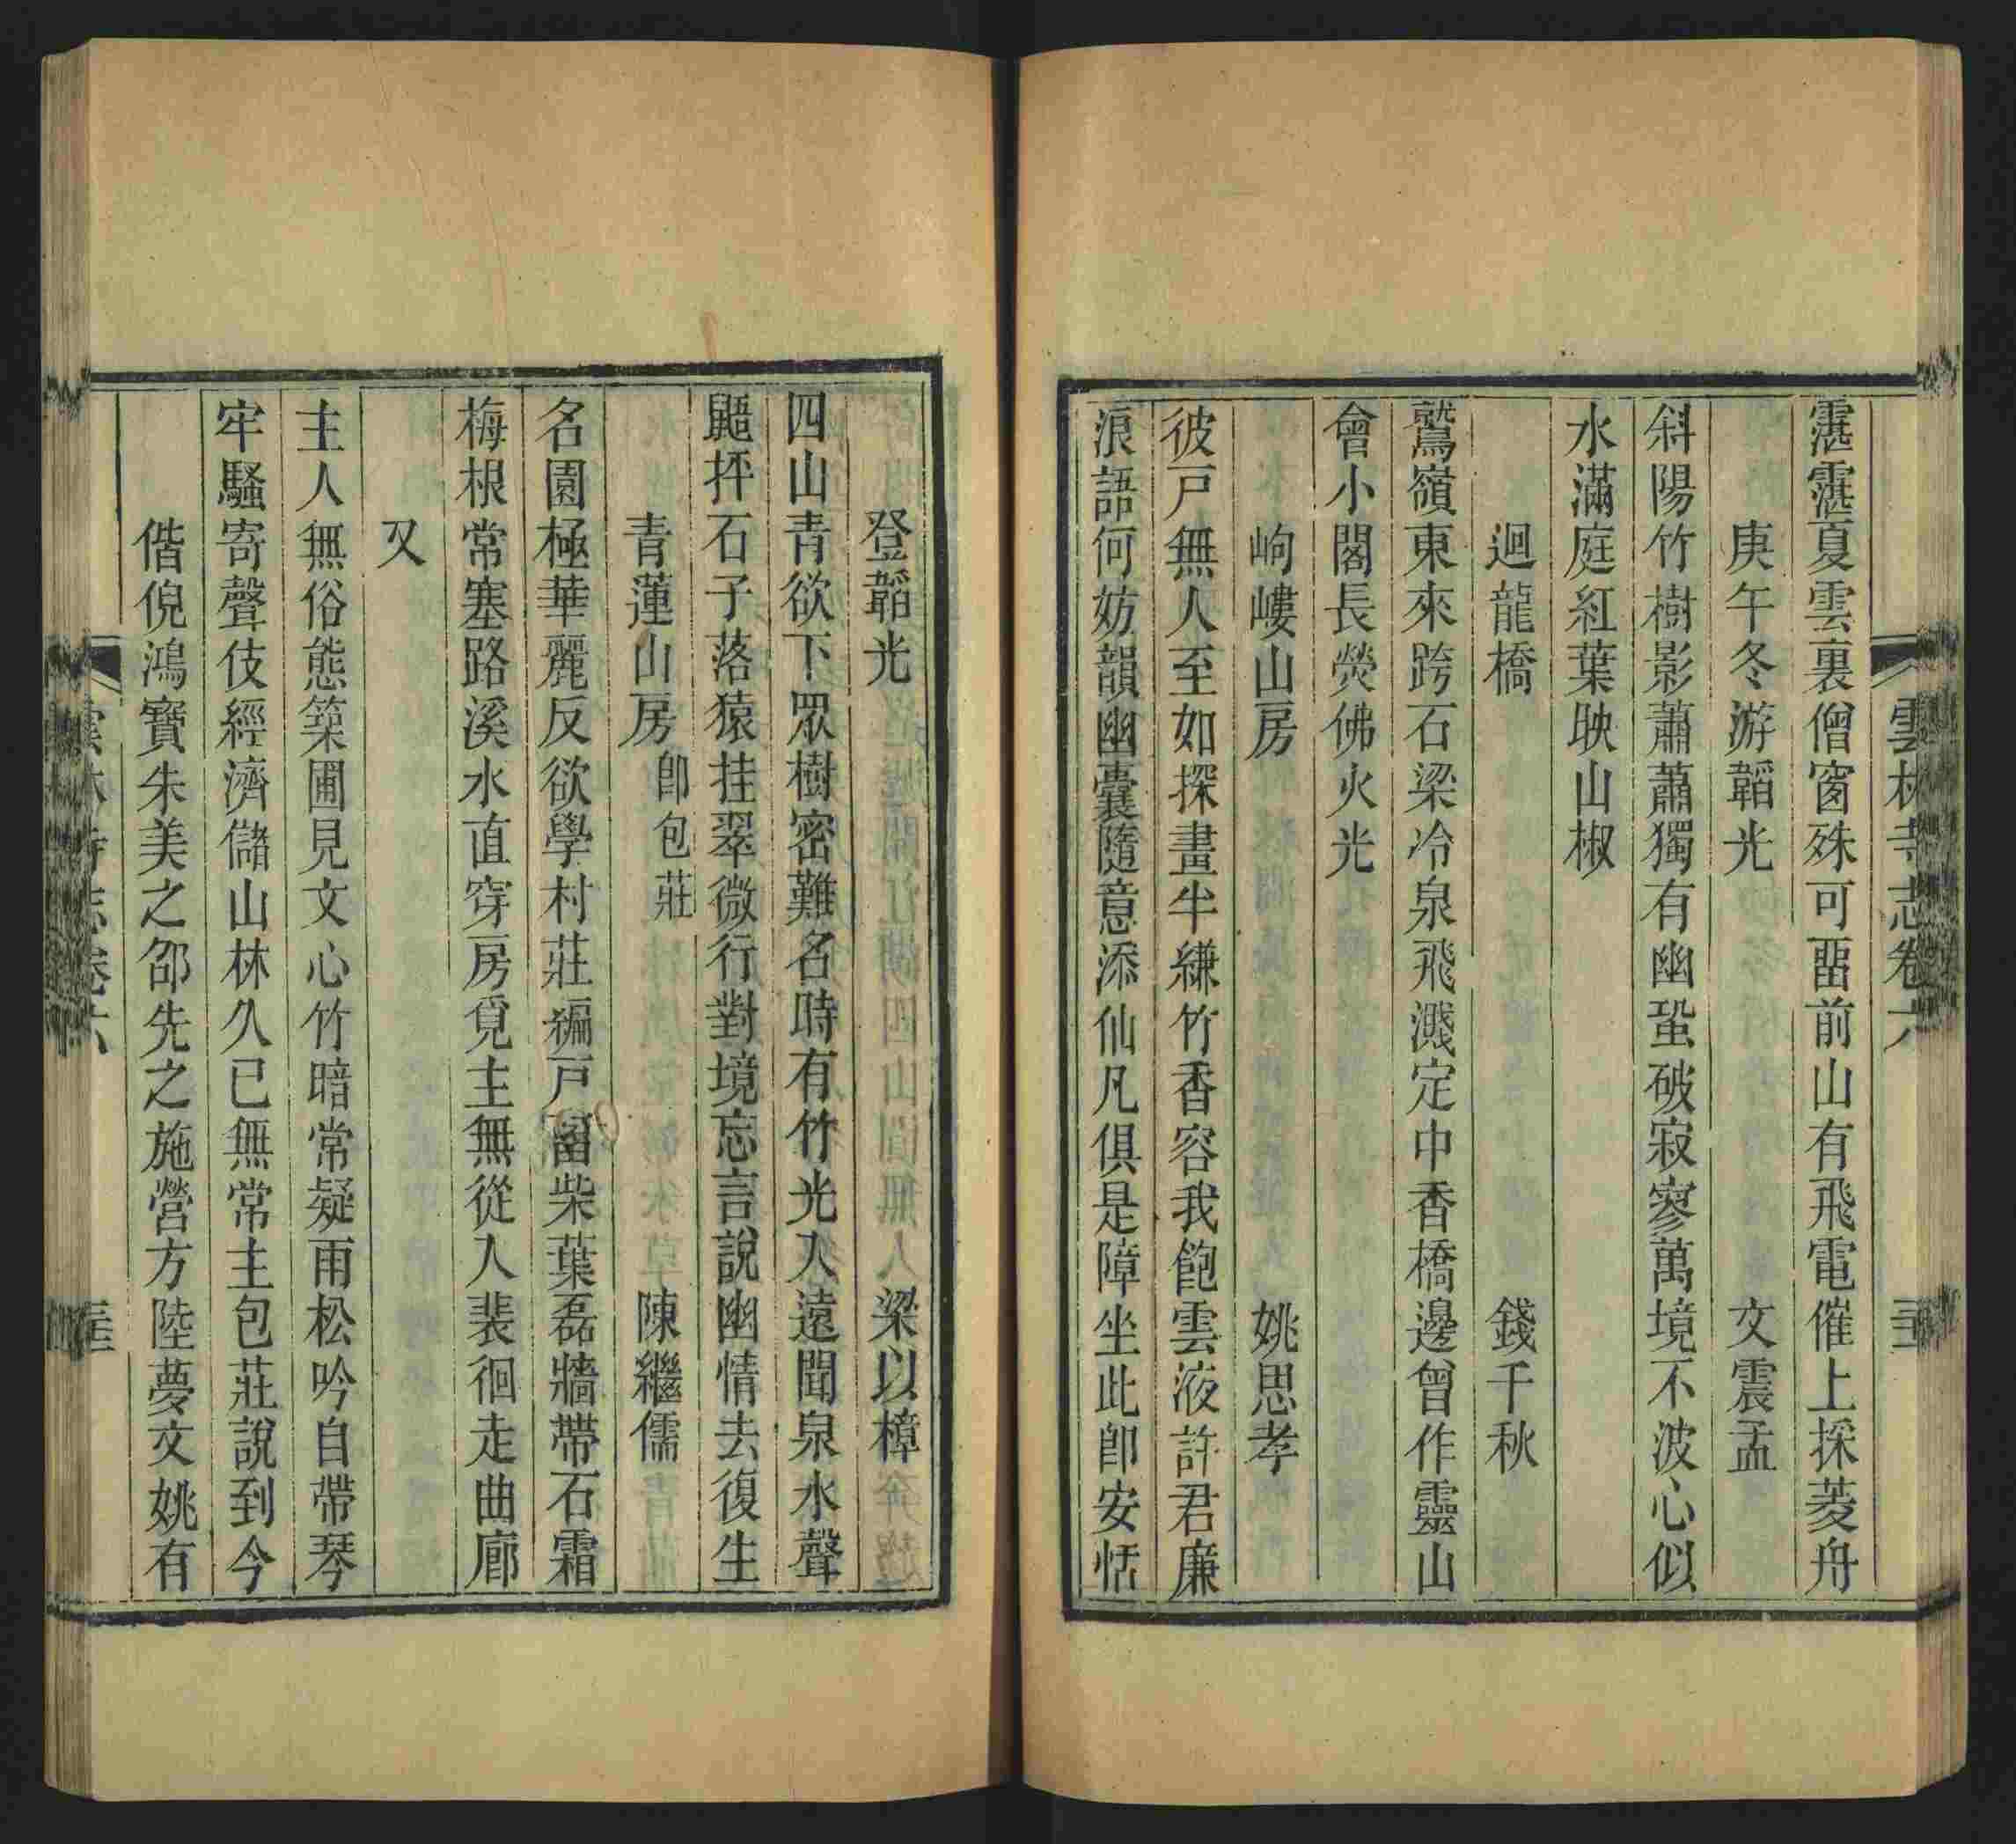 雲林寺志卷六
霮霮夏雲裏僧窗殊可畱前山有飛電催上採菱舟
庚午冬游韜光 文震孟
斜陽竹樹影蕭蕭獨有幽蛩破寂寥萬境不波心似
水滿庭紅葉映山椒
迴龍橋 錢千秋
鷲嶺東來跨石梁冷泉飛濺定中香橋邊曾作靈山
會小閣長熒佛火光
岣嶁山房 姚思孝
彼戸無人至如探畫半縑竹香容我飽雲液許君廉
浪語何妨韻幽囊隨意添仙凡俱是障坐此卽安恬
登韜光 梁以樟
四山青欲下眾樹密難名時有竹光入遠聞泉水聲
鼯抨石子落猿挂翠微行對境忘言說幽情去復生
青蓮山房 卽包莊 陳繼儒
名園極華麗反欲學村莊編戸畱柴葉磊牆帶石霜
梅根常塞路溪水直穿房覓主無從人裴徊走曲廊
又
主人無俗態築圃見文心竹暗常疑雨松吟自帶琴
牢騷寄聲伎經濟儲山林久已無常主包莊說到今
偕倪鴻寶朱美之邵先之施營方陸夢文姚有